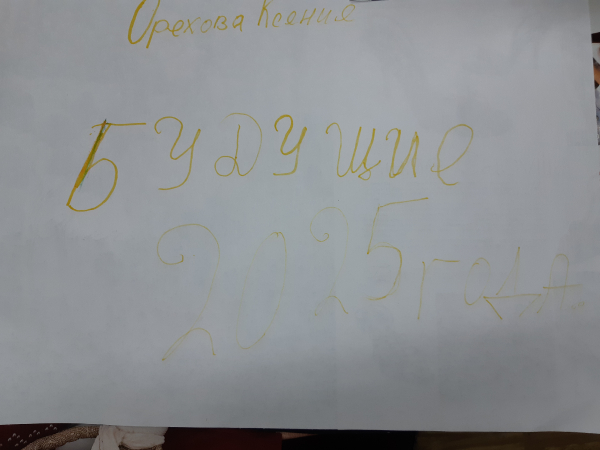 Орехова Ксения
БУДУЩИЕ
2025 года.